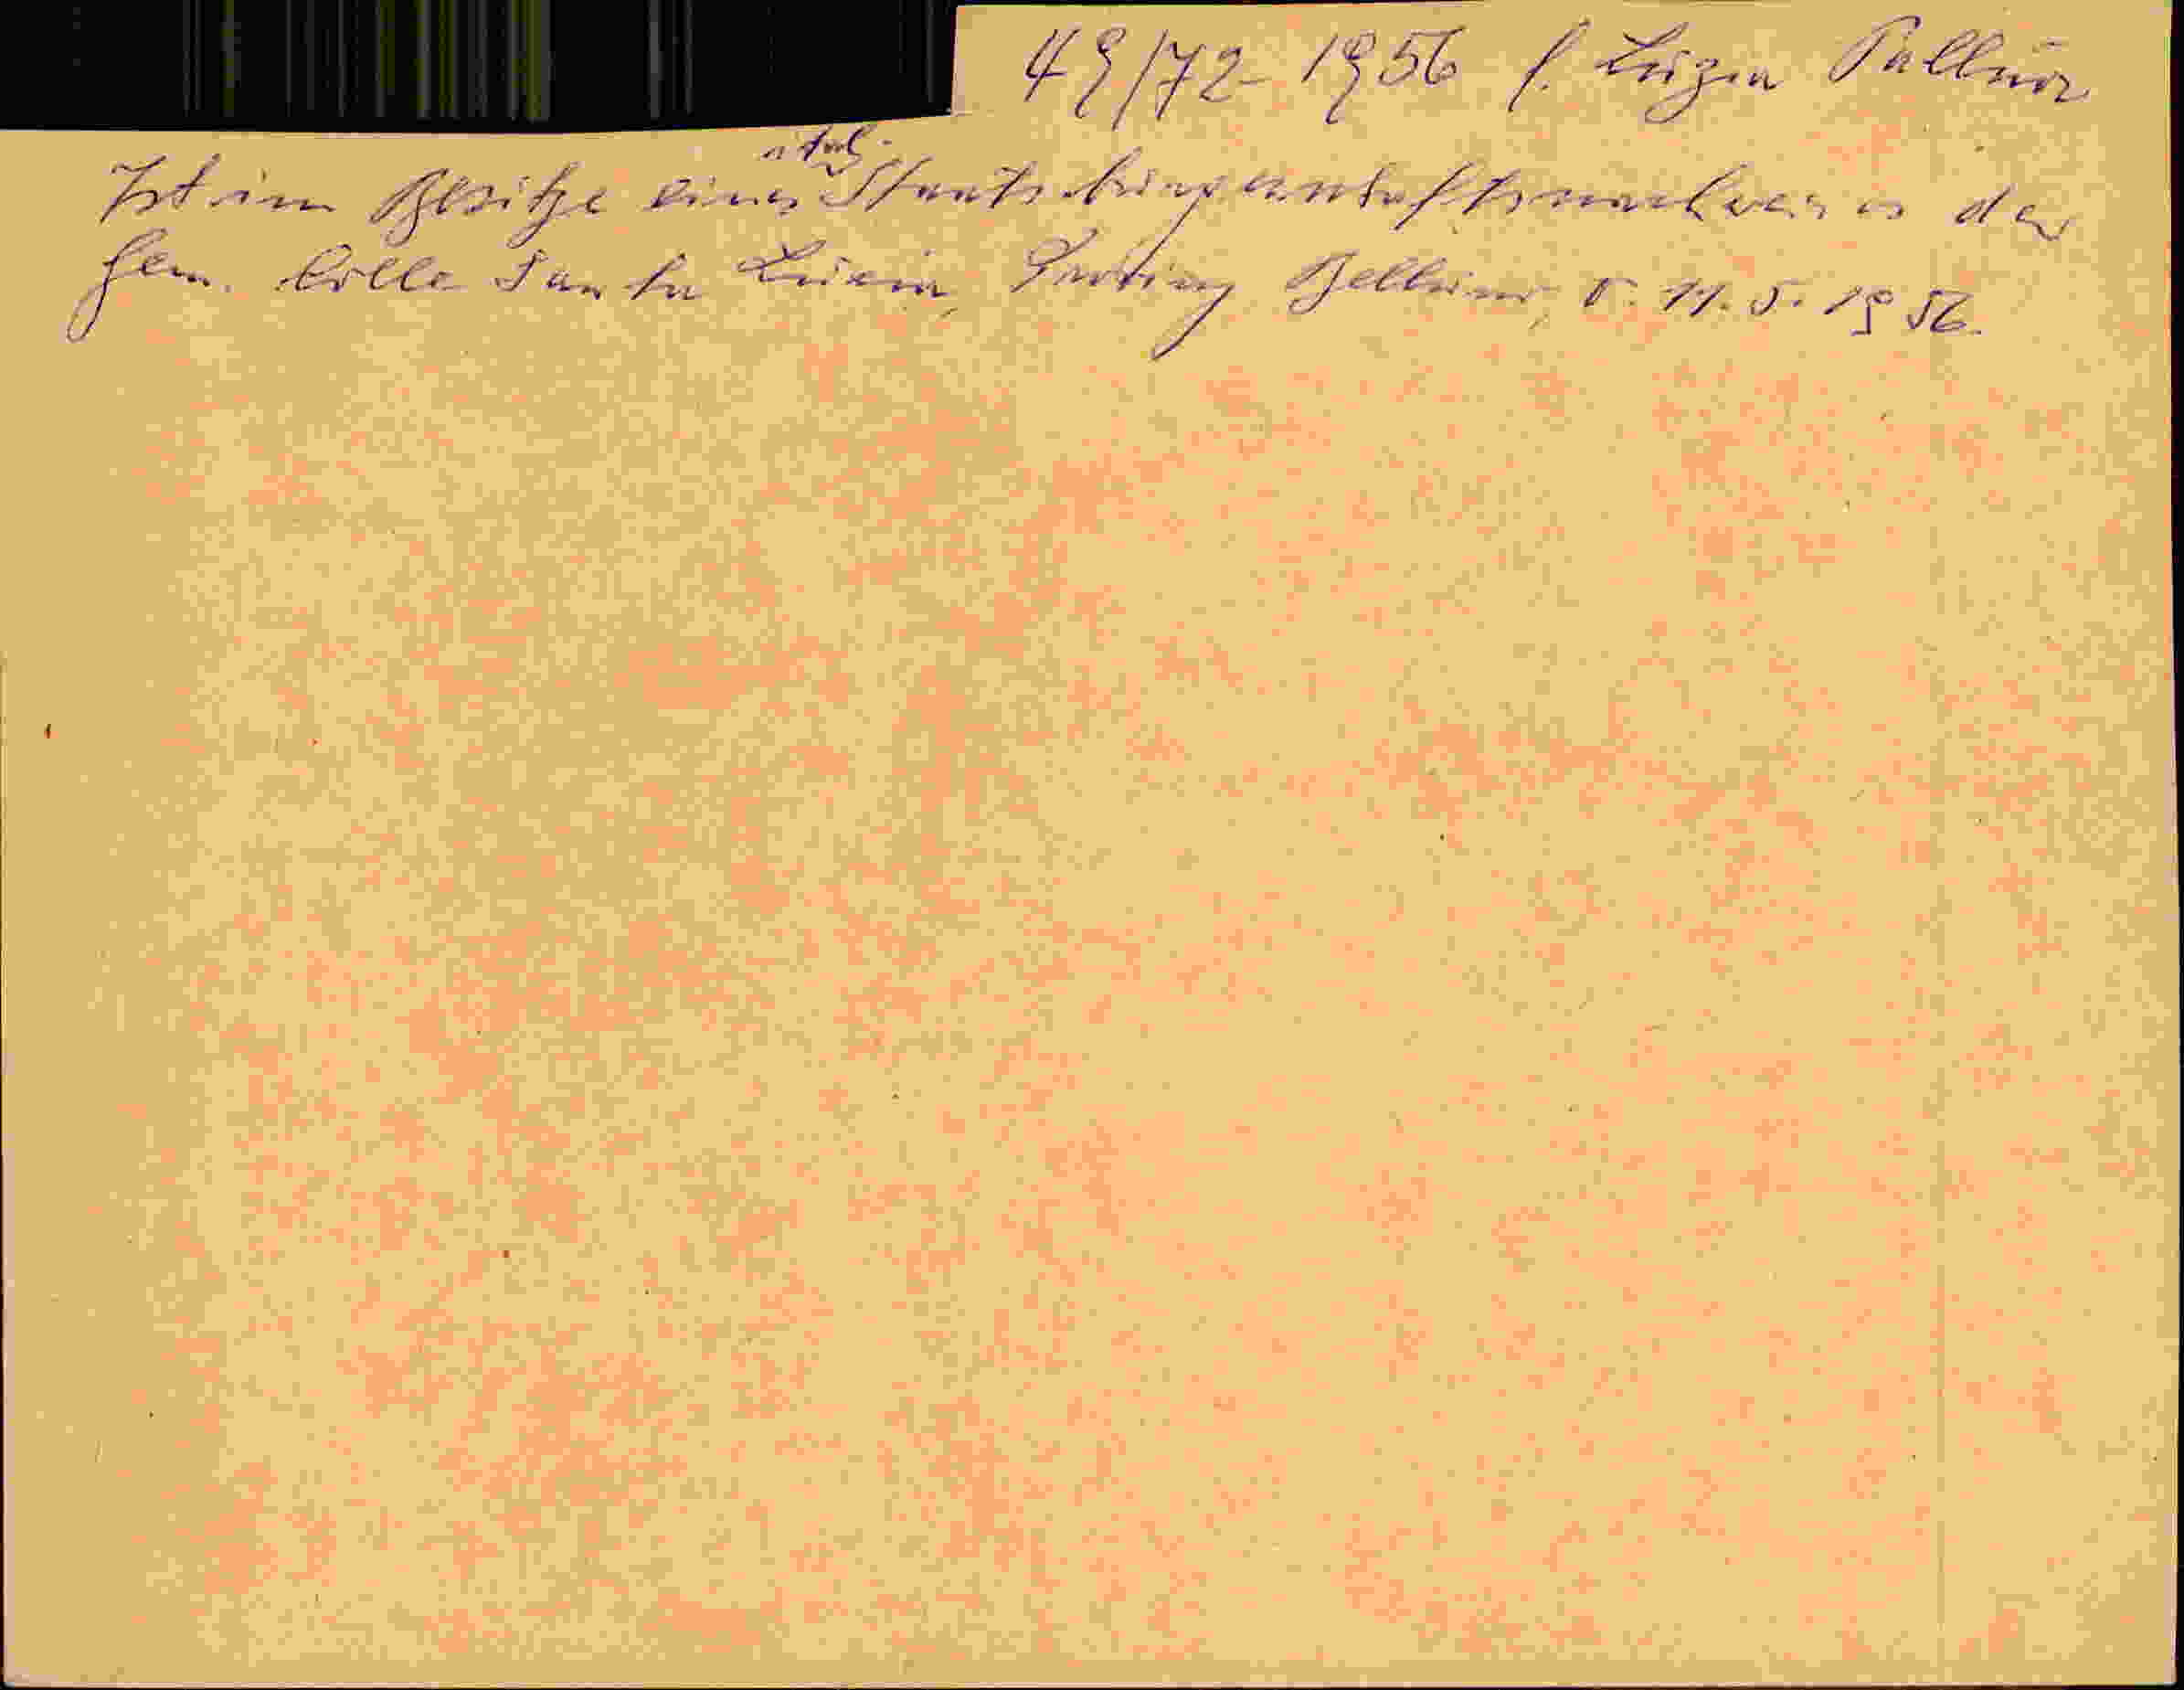 49/72-1956 f. Luzia Pallua
Ist im Besitze eines ital. Staatsbürgerschaftsnachweises der
Gem. Colle Santa Lucia, Belluno, v. 11.5.1956.